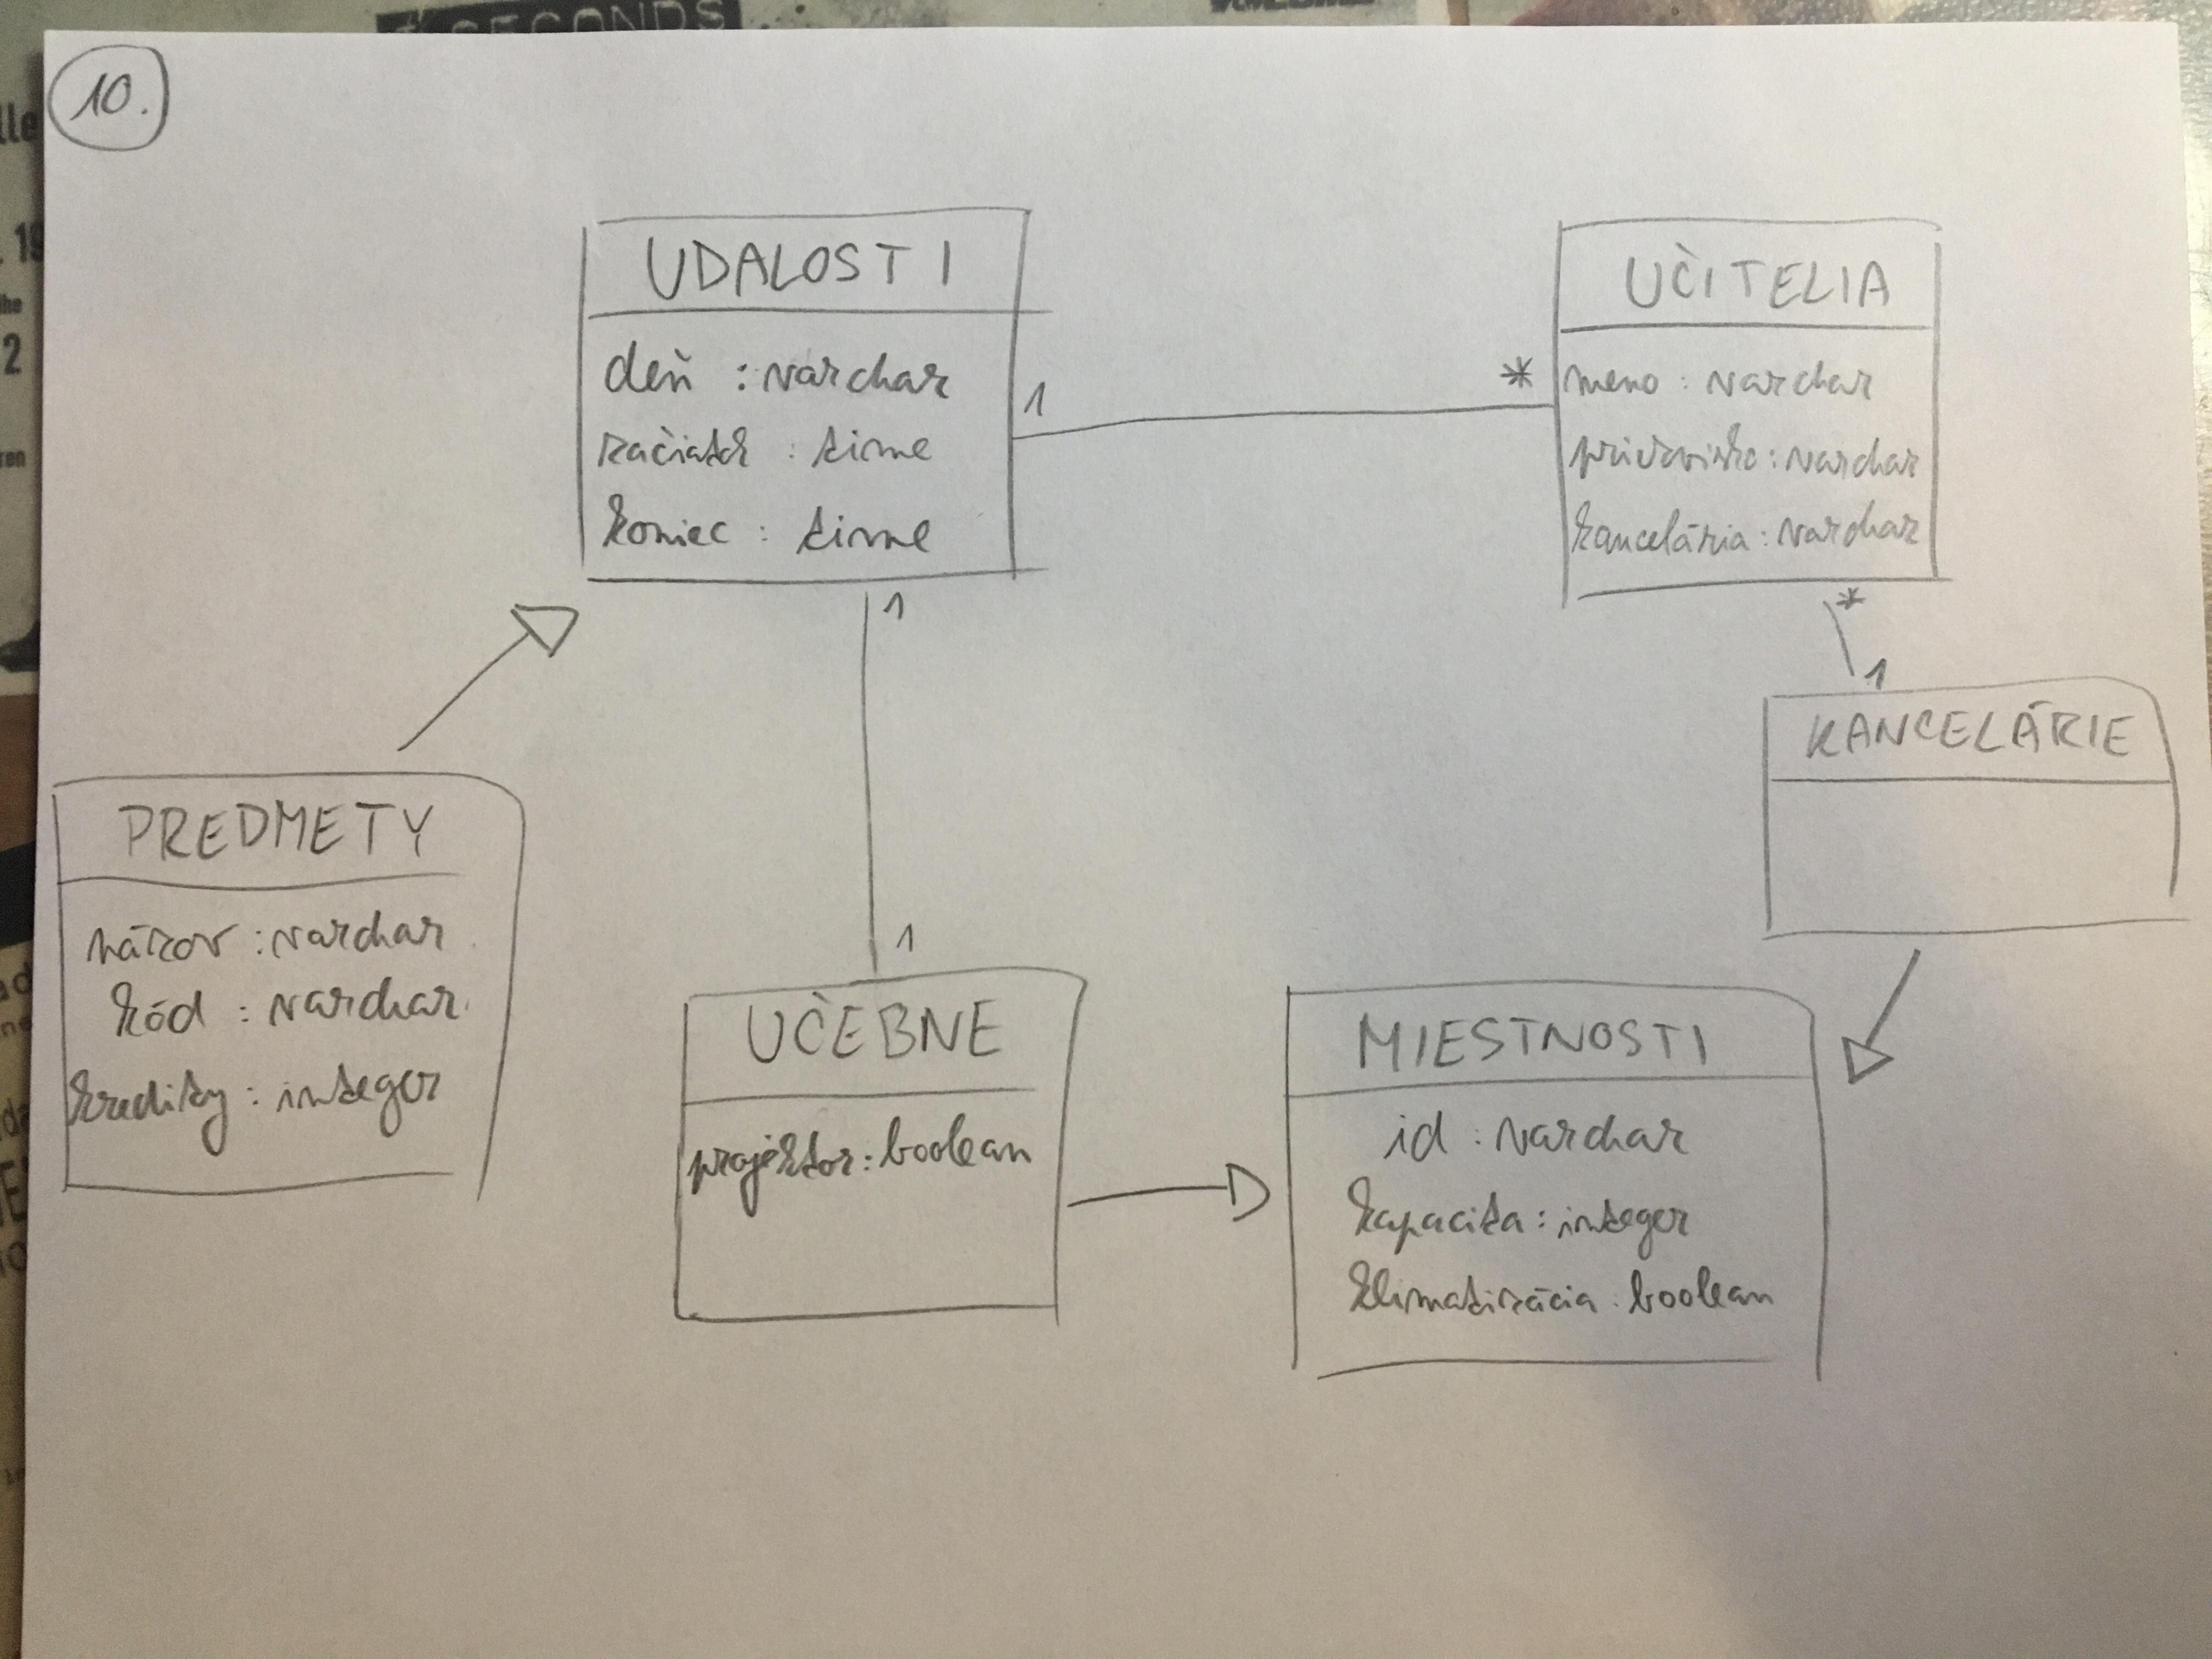 10.
SECONDS
UDALOSTI
deň : varchar
začiatok : time
koniec : time
1
1
UČITELIA
meno : varchar
priezvisko : varchar
kancelária : varchar
*
*
1
KANCELÁRIE
PREDMETY
názov : varchar
kód : varchar
kredity : integer
1
UČEBNE
projektor : boolean
MIESTNOSTI
id : varchar
kapacita : integer
klimatizácia : boolean